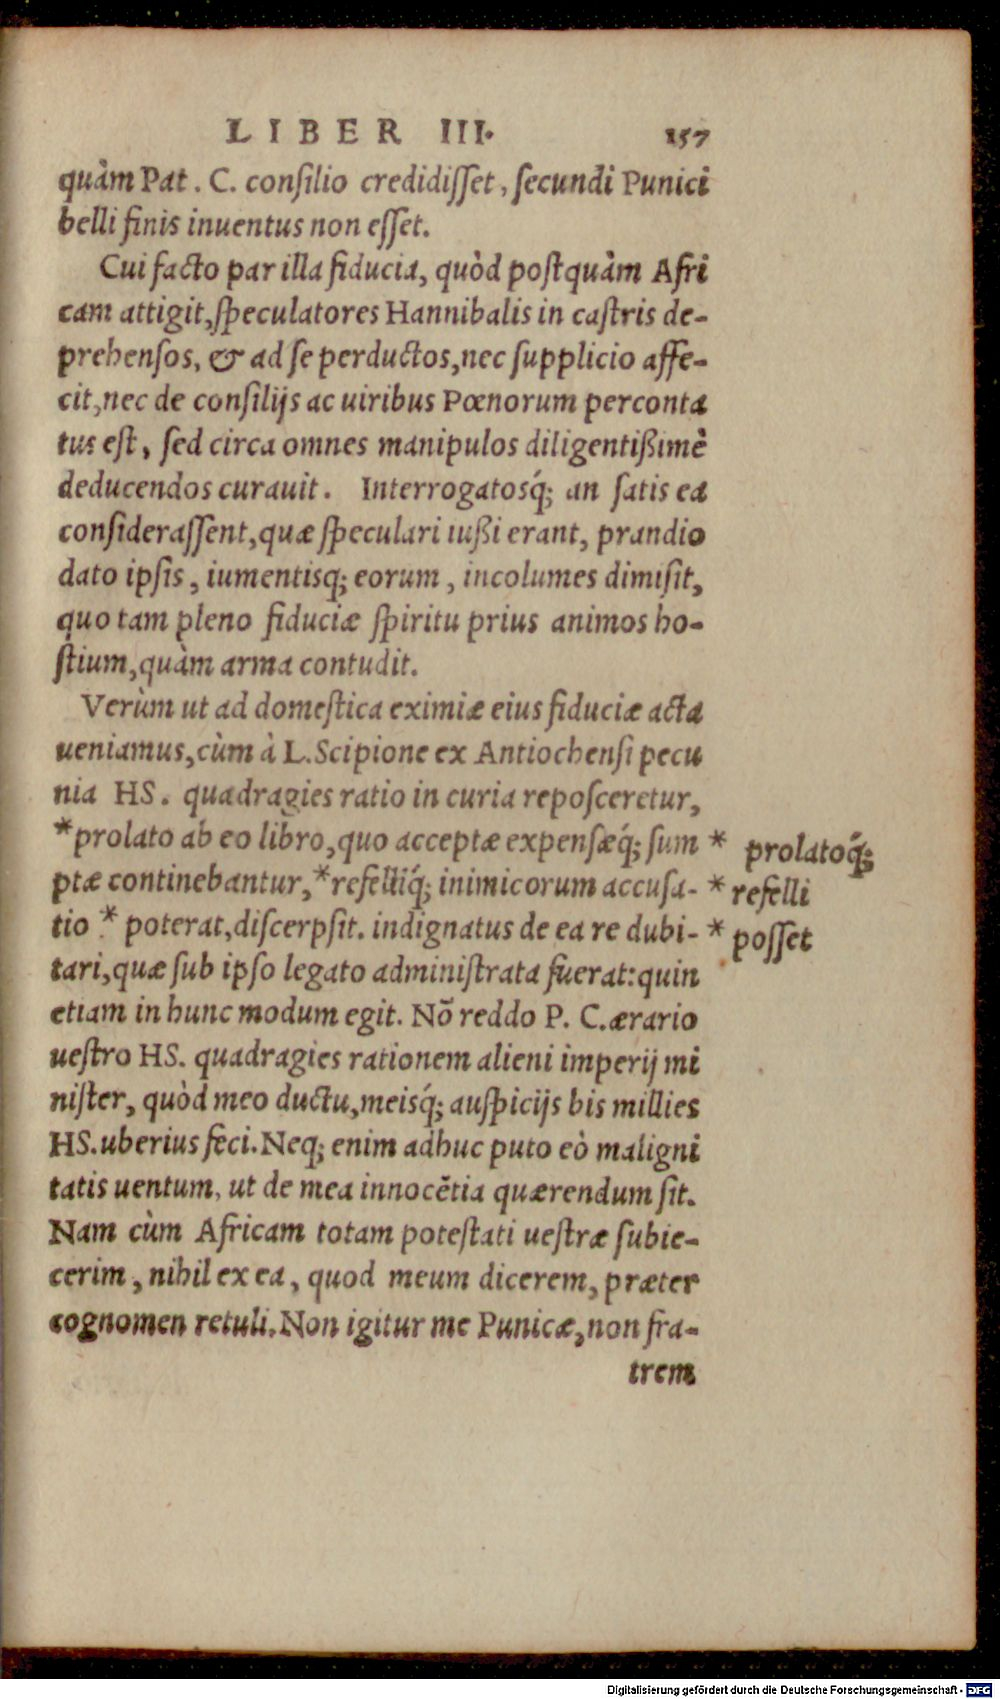 LIBER III. 157
quàm Pat. C. consilio credidiſſet, ſecundi Punici
belli finis inuentus non eſſet.
Cui facto par illa fiducia, quòd poſtquàm Afri
cam attigit, ſpeculatores Hannibalis in caſtris de-
prehenſos, & ad ſe perductos, nec ſupplicio affe-
cit, nec de conſilijs ac uiribus Pœnorum perconta
tus eſt, ſed circa omnes manipulos diligentißimè
deducendos curauit. Interrogatosq́; an ſatis ea
conſideraſſent, quæ ſpeculari iußi erant, prandio
dato ipſis, iumentisq; eorum, incolumes dimiſit,
quo tam pleno fiduciæ ſpiritu prius animos ho-
ſtium, quàm arma contudit.
Verùm ut ad domeſtica eximiæ eius fiduciæ acta
ueniamus, cùm à L. Scipione ex Antiochenſi pecu
nia HS. quadragies ratio in curia repoſceretur,
*prolato ab eo libro, quo acceptæ expenſæq́; ſum * prolatoq́;
ptæ continebantur, *refelliq́; inimicorum accuſa- * refelli
tio * poterat, diſcerpſit. indignatus de ea re dubi- * poſſet
tari, quæ ſub ipſo legato adminiſtrata fuerat: quin
etiam in hunc modum egit. Nō reddo P. C. ærario
ueſtro HS. quadragies rationem alieni imperij mi
niſter, quòd meo ductu, meisq́; auſpicijs bis millies
HS. uberius feci. Neq; enim adhuc puto eò maligni
tatis uentum, ut de mea innocētia quærendum ſit.
Nam cùm Africam totam poteſtati ueſtræ ſubie-
cerim, nihil ex ea, quod meum dicerem, præter
cognomen retuli. Non igitur me Punicæ, non fra-
trem
Digitalisierung gefördert durch die Deutsche Forschungsgemeinschaft - DFG